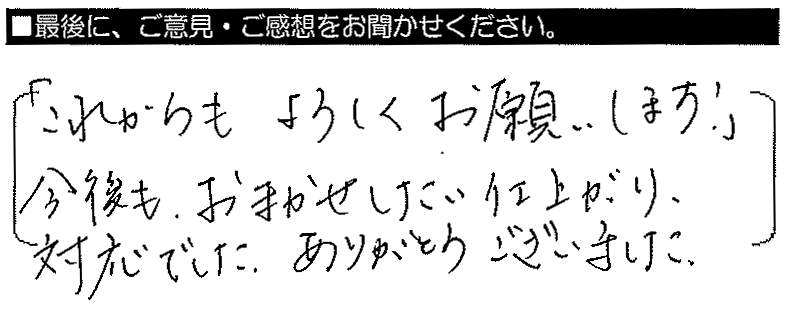 ■最後に、ご意見・ご感想をお聞かせください。
「これからも よろしく お願いします!」
今後も、おまかせしたい仕上がり、
対応でした。ありがとうございました。